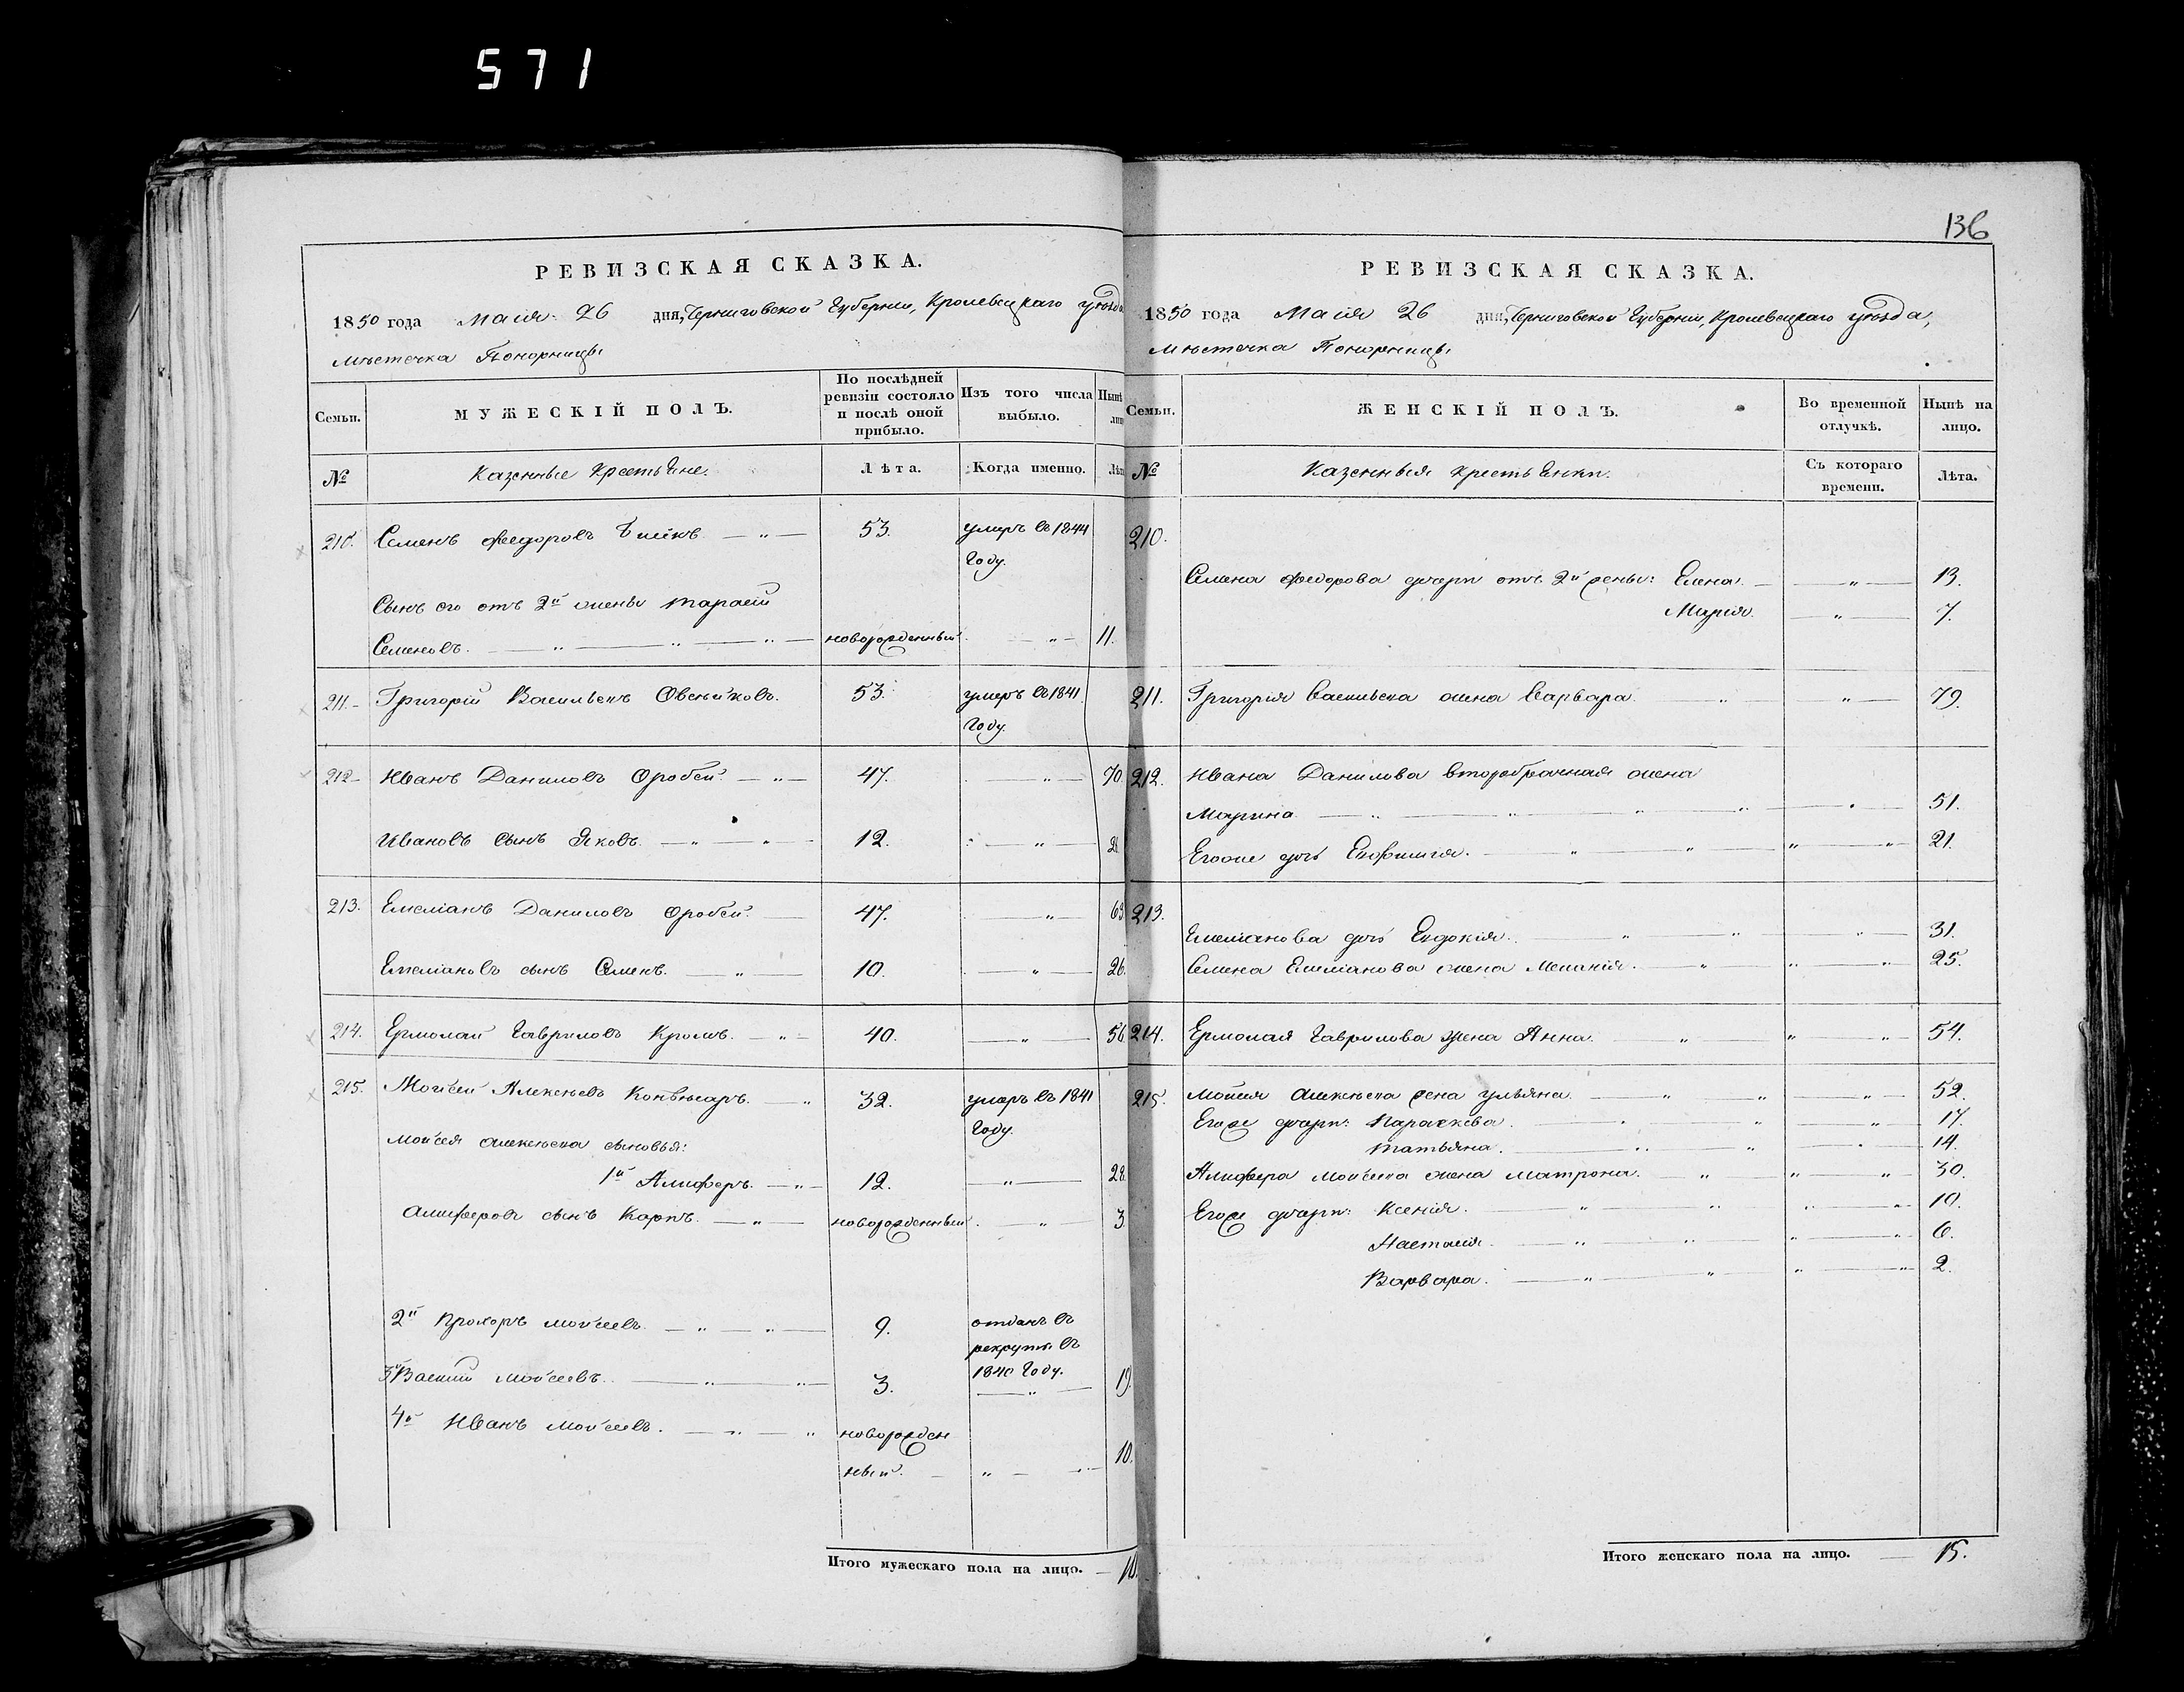 571
136
РЕВИЗСКАЯ СКАЗКА.
1850 года Маія 26 дня, Черниговской Губерніи, Кролевецкаго уѣзда
мѣстечка Понорницы
Семьи. МУЖЕСКІЙ ПОЛЪ. По послѣдней ревизіи состояло и послѣ оной прибыло. Изъ того числа выбыло. Нынѣ
№ Казенные крестьяне. Лѣта. Когда именно.
210. Семенъ Федоровъ 53. умеръ въ 1844
году.
Сынъ его отъ 2й жены Тарасій
Семеновъ. новорожденный 11.
211. Григорій Васильевъ Овсѣйковъ. 53. умеръ въ 1841
году.
212 Иванъ Даниловъ Оробей. 47. 70.
Ивановъ сынъ Яковъ. 12.
213. Емеліанъ Даниловъ Оробей. 47. 63
Емеліановъ сынъ Семенъ. 10. 26.
214. Ермолай Гавриловъ 40. 56
215. Мойсей Алексѣевъ 32. умеръ въ 1841
году.
Мойсея Алексѣева сыновья:
1й Алиферъ. 12. 28.
Алиферовъ сынъ Карпъ. новорожденный 3
2й Прохоръ Мойсеевъ. 9. отданъ въ
рекруты въ
1840 году.
3й Василій Мойсеевъ. 3. 19.
4й Иванъ Мойсеевъ. новорожден
ный. 10.
Итого мужескаго пола на лицо. 10.
РЕВИЗСКАЯ СКАЗКА.
1850 года Маія 26 дня, Черниговской Губерніи, Кролевецкаго уѣзда,
мѣстечка Понорницы
Семьи. ЖЕНСКІЙ ПОЛЪ. Во временной отлучкѣ. Нынѣ на лицо.
№ Казенныя крестьянки. Съ котораго времени. Лѣта.
210.
Семена Федорова дочери отъ 2й жены: Елена. 13.
Марія. 7.
211. Григорія Васильева жена Варвара. 79.
212. Ивана Данилова второбрачная жена
Марина. 51.
Его же дочь Евфимія. 21.
213.
Емеліанова дочь Евдокія. 31.
Семена Емеліанова жена Меланія. 25.
214. Ермолая Гаврилова жена Анна. 54.
215. Мойсея Алексѣева жена Ульяна. 52.
Его же дочери: Параскева. 17.
Татьяна. 14.
Алифера Мойсеева жена Матрона. 30.
Его же дочери: Ксенія. 10.
Настасія. 6.
Варвара. 2.
Итого женскаго пола на лицо. 15.